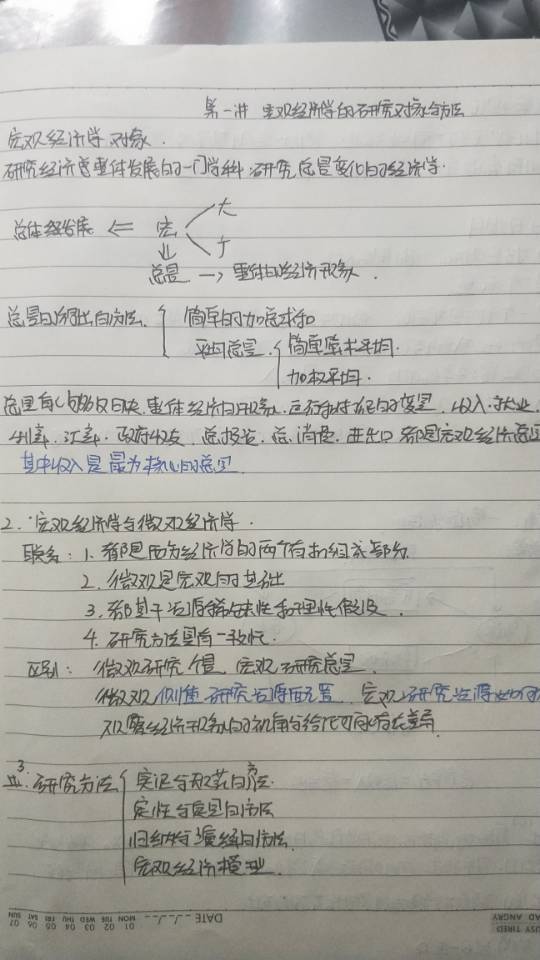 第一讲 宏观经济学的研究对象与方法
宏观经济学对象.
研究经济学整体发展的一门学科:研究总量变化的经济学.
大
总体经发展 ⇐ 宏
⇓ 于
总量 → 整体的经济现象.
总量的方法. 简单的加总求和
平均总量 简单算术平均.
加权平均.
总量是能够反映整体经济的现象.运行的变量.收入.就业.
利率.汇率.政府收支.总投资.总消费.进出口 都是宏观经济总量
其中收入是最为核心的总量.
2.宏观经济学与微观经济学.
联系: 1.都是西方经济学的两个有机组成部分.
2.微观是宏观的基础
3.都基于资源稀缺性和理性假设.
4.研究方法具有一致性.
区别: 微观研究个量.宏观研究总量.
微观侧重研究资源配置.宏观研究资源
观察经济现象的视角与结论可能存在差异.
3.研究方法 实证与规范的方法.
定性与定量的方法
归纳与演绎的方法.
宏观经济模型.
DATE
01 02 03 04 05 06 07
MON TUE WED THU FRI SAT SUN
TIRED
ANGRY